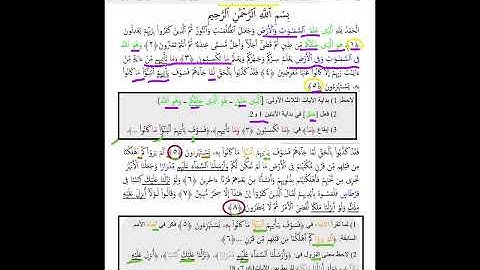 بِسْمِ ٱللَّهِ ٱلرَّحْمَٰنِ ٱلرَّحِيمِ
ٱلْحَمْدُ لِلَّهِ ٱلَّذِى خَلَقَ ٱلسَّمَٰوَٰتِ وَٱلْأَرْضَ وَجَعَلَ ٱلظُّلُمَٰتِ وَٱلنُّورَ ثُمَّ ٱلَّذِينَ كَفَرُوا۟ بِرَبِّهِمْ يَعْدِلُونَ
﴿١﴾ هُوَ ٱلَّذِى خَلَقَكُم مِّن طِينٍ ثُمَّ قَضَىٰٓ أَجَلًا وَأَجَلٌ مُّسَمًّى عِندَهُۥ ثُمَّ أَنتُمْ تَمْتَرُونَ ﴿٢﴾ وَهُوَ ٱللَّهُ
فِى ٱلسَّمَٰوَٰتِ وَفِى ٱلْأَرْضِ يَعْلَمُ سِرَّكُمْ وَجَهْرَكُمْ وَيَعْلَمُ مَا تَكْسِبُونَ ﴿٣﴾ وَمَا تَأْتِيهِم مِّنْ
ءَايَةٍ مِّنْ ءَايَٰتِ رَبِّهِمْ إِلَّا كَانُوا۟ عَنْهَا مُعْرِضِينَ ﴿٤﴾ فَقَدْ كَذَّبُوا۟ بِٱلْحَقِّ لَمَّا جَآءَهُمْ فَسَوْفَ يَأْتِيهِمْ أَنۢبَٰٓؤُا۟ مَا كَانُوا۟
بِهِۦ يَسْتَهْزِءُونَ ﴿٥﴾
لاحظ: 1) بداية الآيات الثلاث الأولى: {ٱلَّذِى خَلَقَ - هُوَ ٱلَّذِى خَلَقَكُم - وَهُوَ ٱللَّهُ}
2) فعل {خلق} في بداية الآيتين 1 و 2.
3) إيقاع {مَا} في {مَا تَكْسِبُونَ ﴿٣﴾ وَمَا تَأْتِيهِم}، {فَسَوْفَ يَأْتِيهِمْ أَنۢبَٰٓؤُا۟ مَا كَانُوا۟ ...}
فَقَدْ كَذَّبُوا۟ بِٱلْحَقِّ لَمَّا جَآءَهُمْ فَسَوْفَ يَأْتِيهِمْ أَنۢبَٰٓؤُا۟ مَا كَانُوا۟ بِهِۦ يَسْتَهْزِءُونَ ﴿٥﴾ أَلَمْ يَرَوْا۟ كَمْ أَهْلَكْنَا
مِن قَبْلِهِم مِّن قَرْنٍ مَّكَّنَّٰهُمْ فِى ٱلْأَرْضِ مَا لَمْ نُمَكِّن لَّكُمْ وَأَرْسَلْنَا ٱلسَّمَآءَ عَلَيْهِم مِّدْرَارًا وَجَعَلْنَا ٱلْأَنْهَٰرَ
تَجْرِى مِن تَحْتِهِمْ فَأَهْلَكْنَٰهُم بِذُنُوبِهِمْ وَأَنشَأْنَا مِنۢ بَعْدِهِمْ قَرْنًا ءَاخَرِينَ ﴿٦﴾ وَلَوْ نَزَّلْنَا عَلَيْكَ كِتَٰبًا فِى
قِرْطَاسٍ فَلَمَسُوهُ بِأَيْدِيهِمْ لَقَالَ ٱلَّذِينَ كَفَرُوٓا۟ إِنْ هَٰذَآ إِلَّا سِحْرٌ مُّبِينٌ ﴿٧﴾ وَقَالُوا۟ لَوْلَآ أُنزِلَ عَلَيْهِ
مَلَكٌ وَلَوْ أَنزَلْنَا مَلَكًا لَّقُضِىَ ٱلْأَمْرُ ثُمَّ لَا يُنظَرُونَ ﴿٨﴾
1) لما تقرأ {فَسَوْفَ يَأْتِيهِمْ أَنۢبَٰٓؤُا۟ مَا كَانُوا۟ بِهِۦ يَسْتَهْزِءُونَ ﴿٥﴾} فكر في أنباء الأمم
السابقة {أَلَمْ يَرَوْا۟ كَمْ أَهْلَكْنَا مِن قَبْلِهِم مِّن قَرْنٍ ... ﴿٦﴾}
2) لاحظ معنى النزول في: {وَأَرْسَلْنَا ٱلسَّمَآءَ عَلَيْهِم}، {نَزَّلْنَا عَلَيْكَ}، {أُنزِلَ عَلَيْهِ